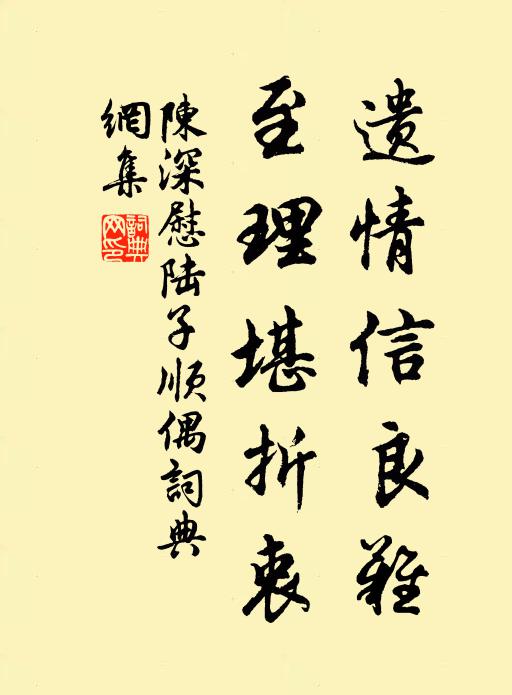 遗情信良難
至理堪折衷
陳深慰陆子順偶詞典
網集
詞典網印